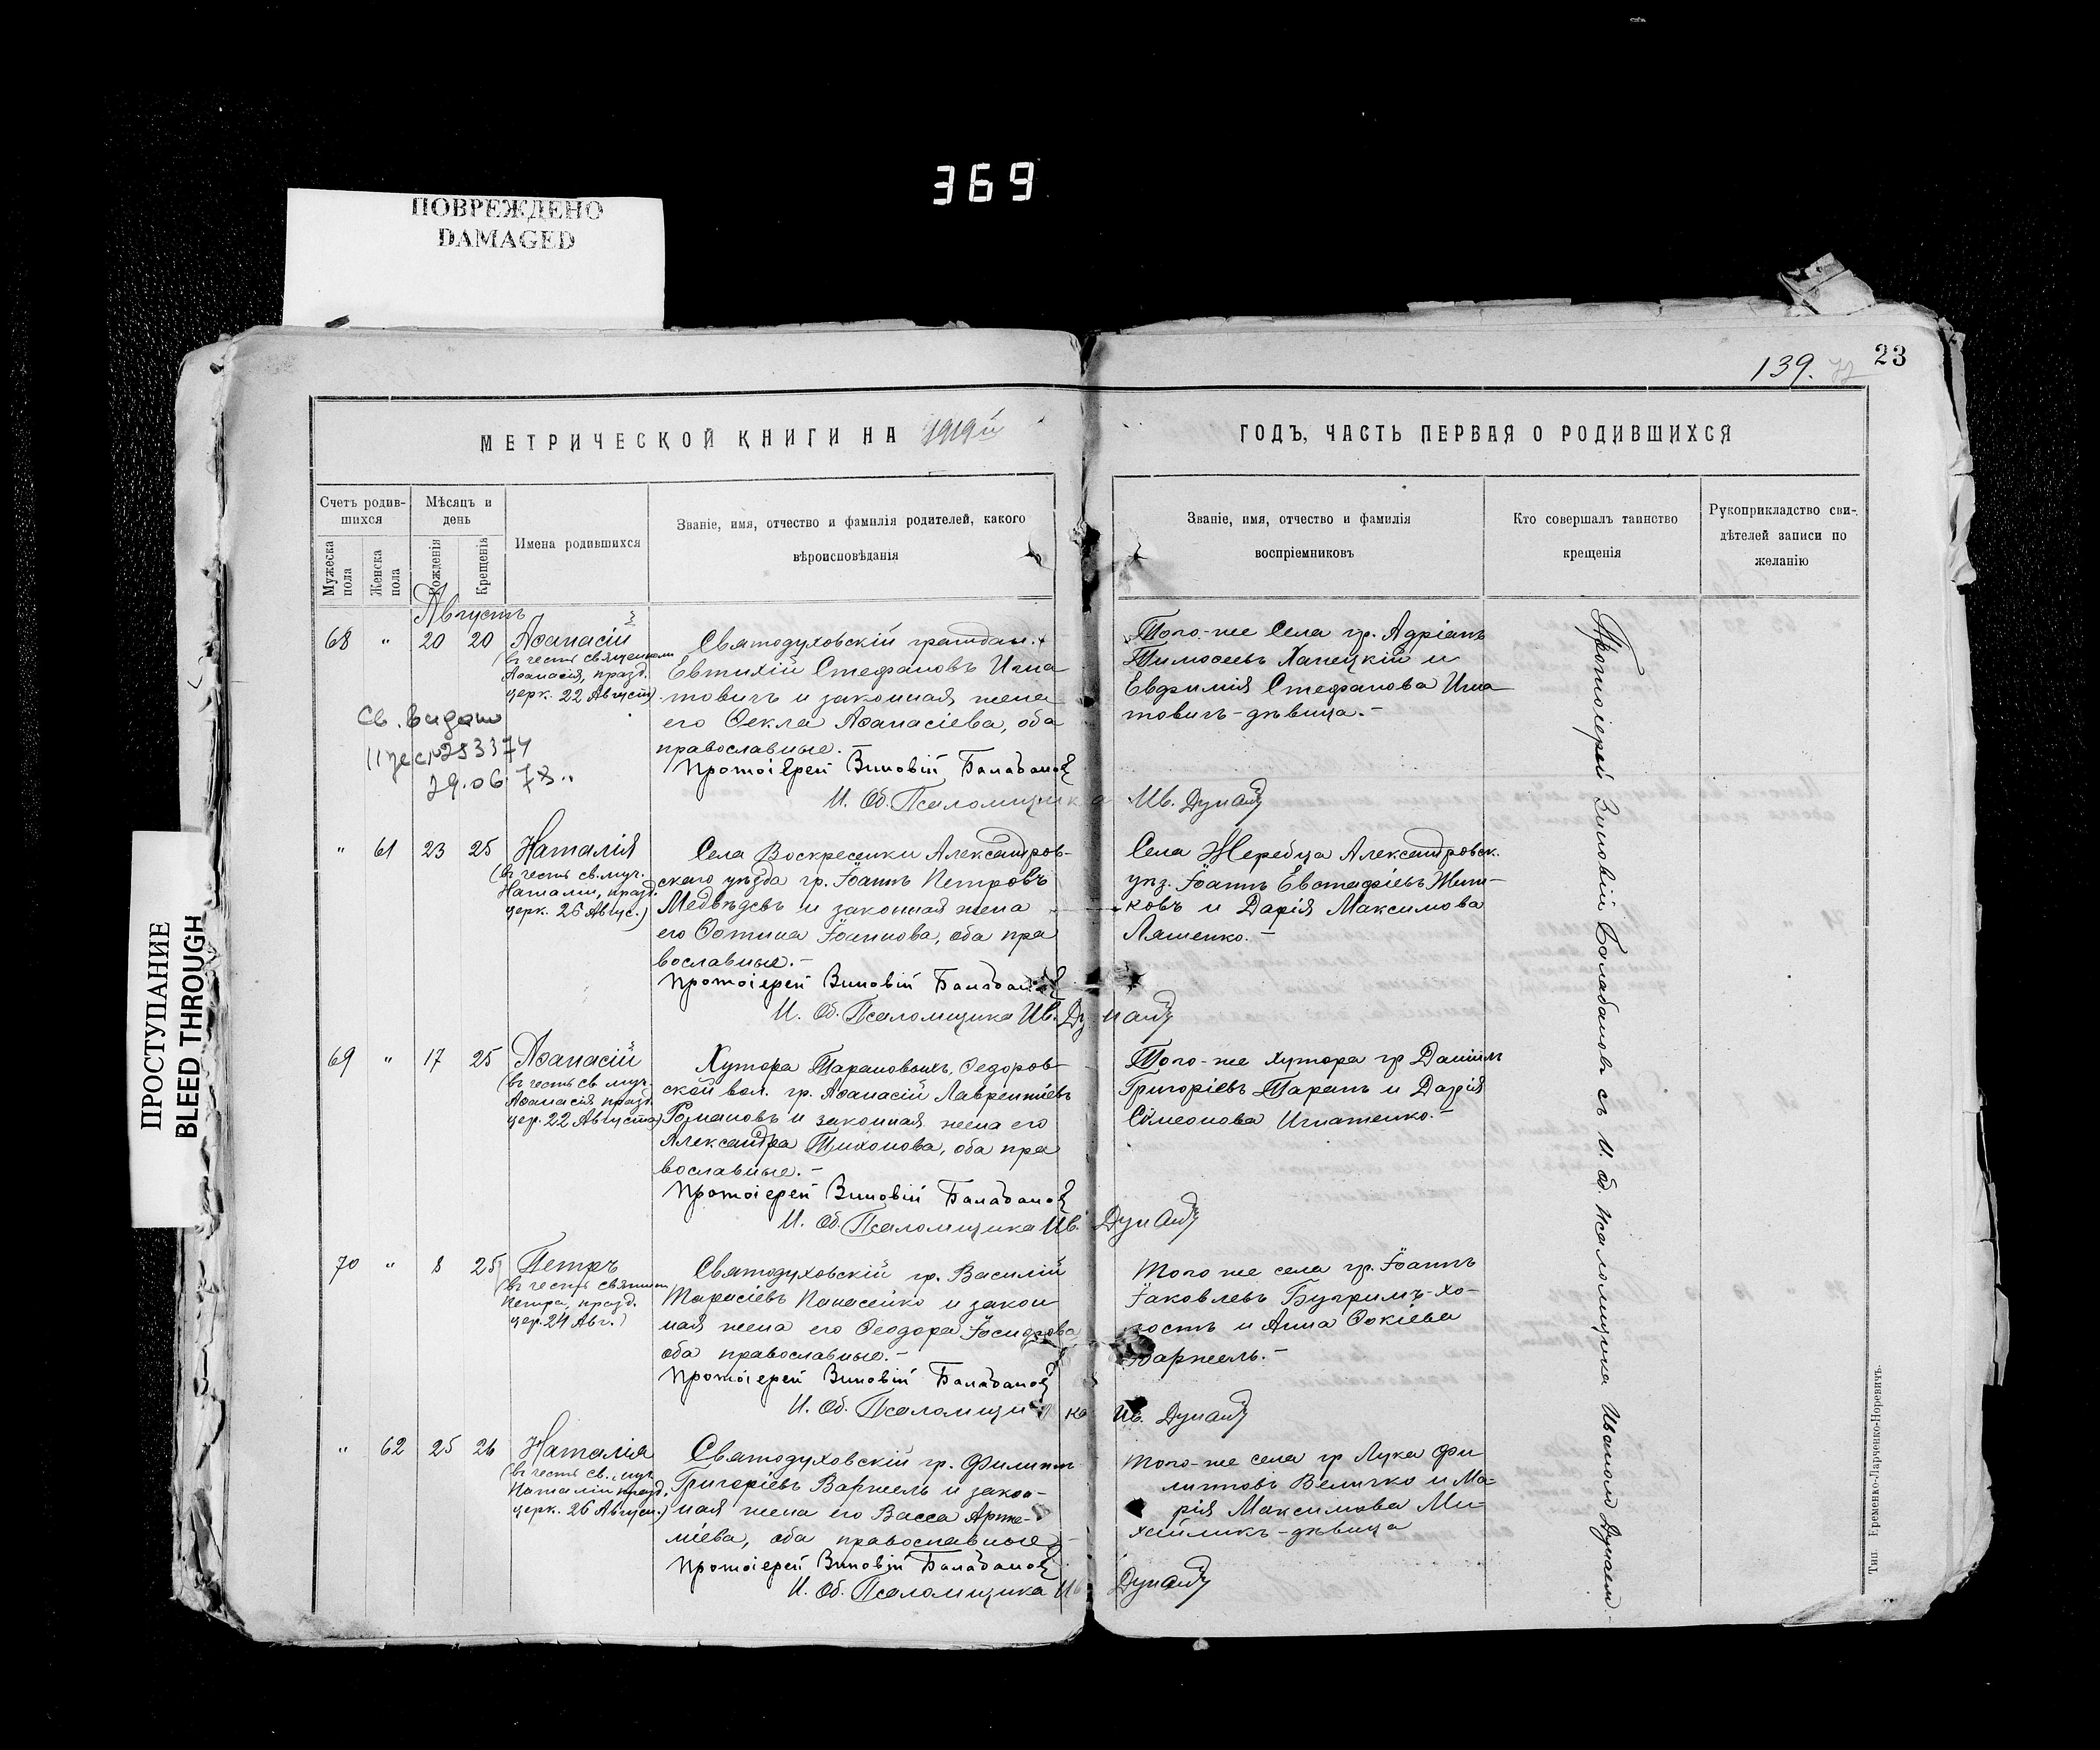 369
ПОВРЕЖДЕНО
DAMAGED
ПРОСТУПАНИЕ
BLEED THROUGH
139.
23
МЕТРИЧЕСКОЙ КНИГИ НА 1919й
ГОДЪ, ЧАСТЬ ПЕРВАЯ О РОДИВШИХСЯ
Счетъ родив-
шихся
Мужеска
пола
Женска
пола
Мѣсяцъ и
день
Рожденія
Крещенія
Имена родившихся
Званіе, имя, отчество и фамилія родителей, какого
вѣроисповѣданія
Званіе, имя, отчество и фамилія
воспріемниковъ
Кто совершалъ таинство
крещенія
Рукоприкладство сви-
дѣтелей записи по
желанію
Августъ
68 " 20 20
Аѳанасій
(въ честь священном
Аѳанасія, празд.
церк. 22 Август)
Св. видано
29.06.78
Святодуховскій граждан.
Евтихій Стефановъ Игна
товичъ и законная жена
его Ѳекла Аѳанасіева, оба
православные.-
Протоіерей Зиновій Балабановъ
И. Об. Псаломщика Ив. Дунай
Того-же Села гр. Адріанъ
Тимоѳеевъ Ханецкій и
Евфимія Стефанова Игна
товичъ-дѣвица.-
" 61 23 25
Наталія
(въ честь св. муч.
Наталіи, празд.
церк. 26 Авгус.)
Села Воскресенки Александров-
скаго уѣзда гр. Іоаннъ Петровъ
Медвѣдевъ и законная жена
его Ѳотина Іоаннова, оба пра
вославные.-
Протоіерей Зиновій Балабановъ
И. Об. Псаломщика Ив. Дунай
Села Жеребца Александровск.
уѣз. Іоаннъ Евстафіевъ
ковъ и Дарія Максимова
Ляшенко.-
69 " 17 25
Аѳанасій
(въ честь св. муч.
Аѳанасія празд.
цер. 22 Августа)
Хутора Тарановыхъ, Ѳедоров-
ской вол. гр. Аѳанасій Лаврентіевъ
Романовъ и законная жена его
Александра Тихонова, оба пра
вославные.-
Протоіерей Зиновій Балабановъ
И. Об. Псаломщика Ив. Дунай
Того-же хутора гр Даніилъ
Григоріевъ Таранъ и Дарія
Сѵмеонова Игнатенко.-
70 " 8 25
Петръ
(въ честь святит
Петра, празд.
цер. 24 Авг.)
Святодуховскій гр. Василій
Тарасіевъ Панасейко и закон
ная жена его Ѳеодора Іосифова
оба православные.-
Протоіерей Зиновій Балабановъ
И. Об. Псаломщика Ив. Дунай
Того же села гр. Іоаннъ
Іаковлевъ Бугримъ-хо-
лостъ и Анна Ѳокіева
Варжель.-
" 62 25 26
Наталія
(въ честь св. муч
Наталіи празд.
церк. 26 Август.)
Святодуховскій гр. Филиппъ
Григоріевъ Варжель и закон-
ная жена его Васса Арте-
міева, оба православные
Протоіерей Зиновій Балабановъ
И. Об. Псаломщика Ив Дунай
Того-же села гр Лука Фи
липповъ Величко и Ма-
рія Максимова Ми-
хайликъ-дѣвица
Протоіерей Зиновій Балабановъ съ И. об. псаломщика Иваномъ Дунаемъ.-
Тип. Еременко-Ларченко-Норевичъ.